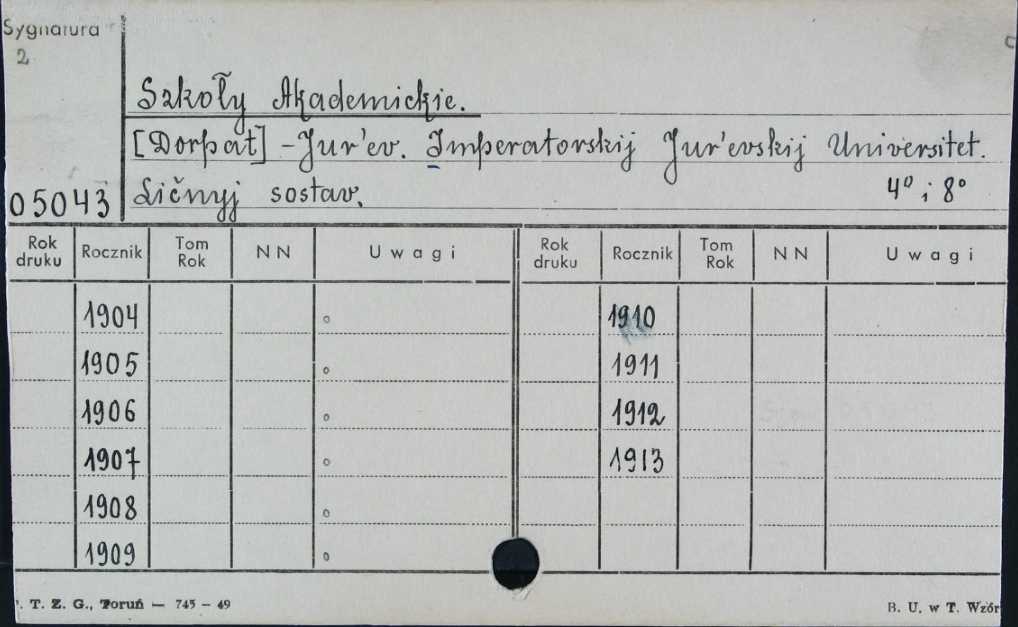 Sygnatura
2
Szkoły Akademickie.
[Dorpat] - Jur'ev. Imperatorskij Jur'evskij Universitet.
05043 Ličnyj sostav. 4° i 8°
Rok druku Rocznik Tom Rok NN Uwagi Rok druku Rocznik Tom Rok NN Uwagi
1904 1910
1905 1911
1906 1912
1907 1913
1908
1909
T. Z. G., Toruń — 745 – 49 B. U. w T. Wzór